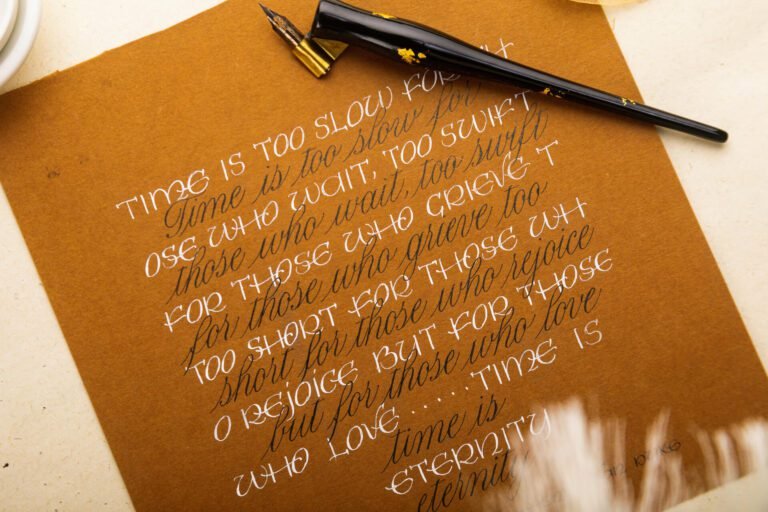 TIME IS TOO SLOW FOR TH
Time is too slow for
OSE WHO WAIT, TOO SWIFT
those who wait, too swift
FOR THOSE WHO GRIEVE T
for those who grieve too
TOO SHORT FOR THOSE WH
short for those who rejoice
O REJOICE BUT FOR THOSE
but for those who love
WHO LOVE.....TIME IS
time is
ETERNITY
eternity